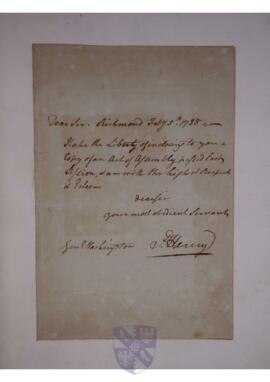 Dear Sir. Richmond Feby 5th 1785
I take the Liberty of inclosing to you a
Copy of an Act of Assembly passed last
Session, & am with the highest Respect
& Esteem
dear sir
your most obedient Servant
Genl Washington P. Henry